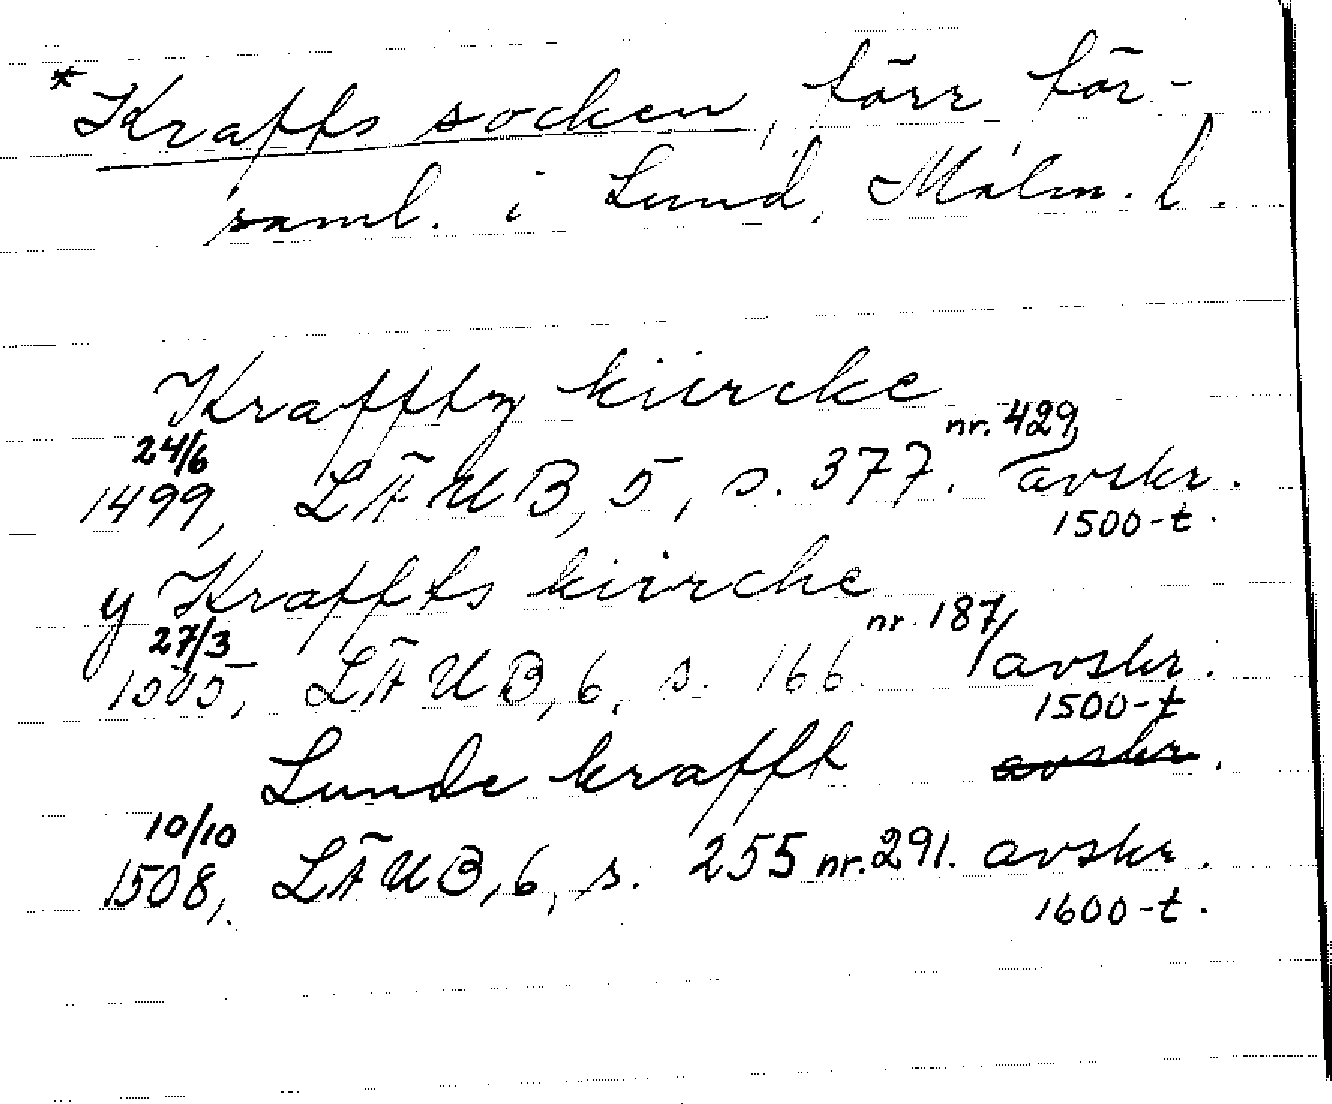 *Krafts socken, förr för-
saml. i Lund, Malm. l.
Krafftz kiircke
24/6
1499, LÄUB, 5, s. 377. nr. 429, avskr.
1500-t.
y Kraffts kiirche
27/3
1505, LÄUB, 6, s. 166 nr. 187, avskr.
1500-t
Lunde krafft avskr.
10/10
1508, LÄUB, 6, s. 255 nr. 291. avskr.
1600-t.